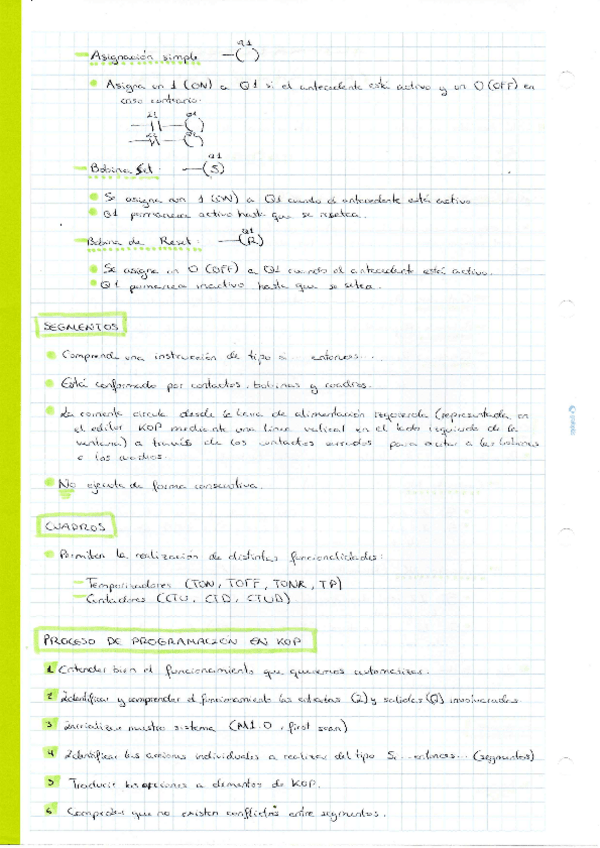 Asignación simple Q1 —( )
Asigna un 1 (ON) a Q1 si el antecedente está activo y un 0 (OFF) en
caso contrario.
I1 Q1
Bobina Set: Q1 —(S)
Se asigna un 1 (ON) a Q1 cuando el antecedente está activo.
Q1 permanece activo hasta que se resetea.
Bobina de Reset: Q1 —(R)
Se asigna un 0 (OFF) a Q1 cuando el antecedente está activo.
Q1 permanece inactivo hasta que se setea.
SEGMENTOS
Comprende una instrucción de tipo si entonces...
Está conformado por contactos, bobinas y cuadros.
La corriente circula desde la línea de alimentación izquierda (representada en
el editor KOP mediante una línea vertical en el lado izquierdo de la
ventana) a través de los contactos cerrados para excitar a las bobinas
o los cuadros.
No ejecuta de forma consecutiva.
CUADROS
Permiten la realización de distintas funcionalidades:
Temporizadores (TON, TOFF, TONR, TP)
Contadores (CTU, CTD, CTUD)
PROCESO DE PROGRAMACIÓN EN KOP
1 Entender bien el funcionamiento que queremos automatizar.
2 Identificar y comprender el funcionamiento las entradas (I) y salidas (Q) involucradas.
3 Inicializar nuestro sistema (M1.0, first scan)
4 Identificar las acciones individuales a realizar del tipo Si... entonces... (segmentos)
5 Traducir las acciones a elementos de KOP.
6 Comprobar que no existen conflictos entre segmentos.